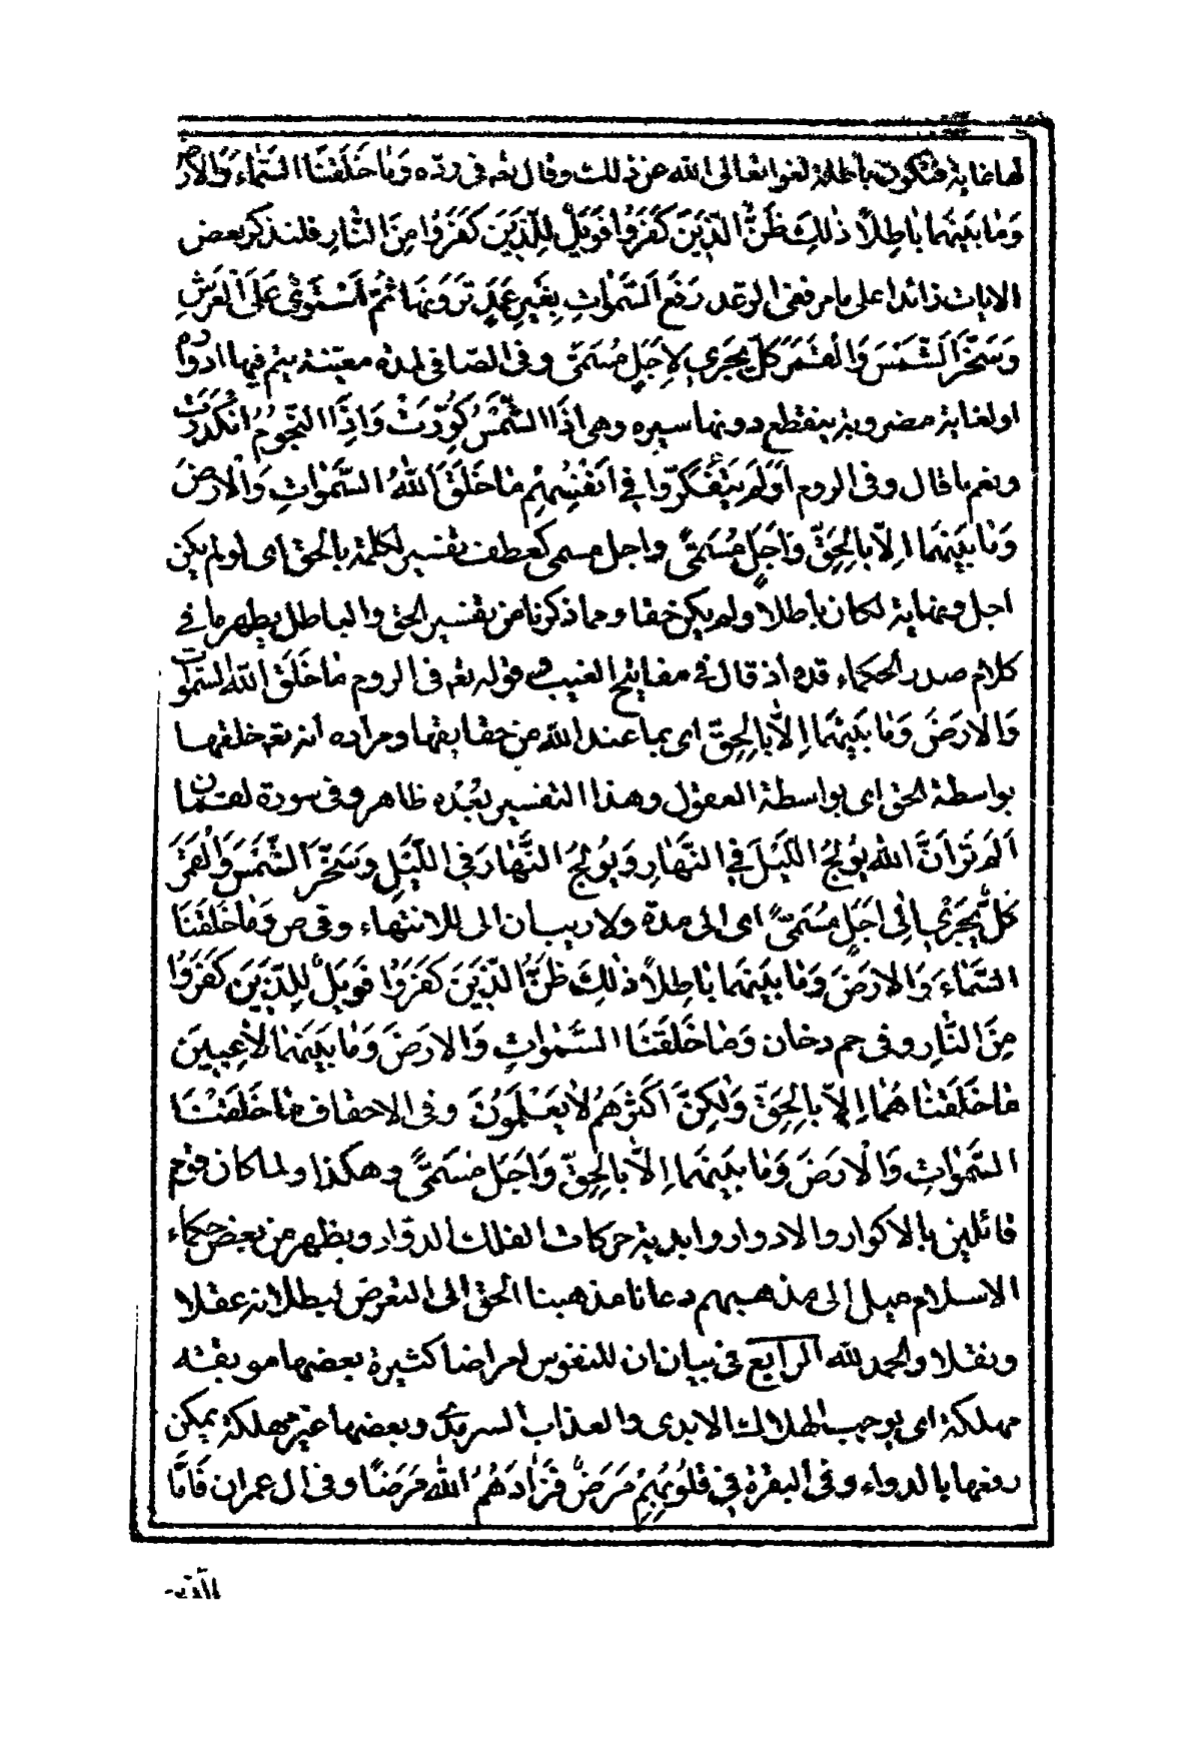 لها غاية فتكون باطلة لغوا تعالى الله عن ذلك وقال تعه فى ردّه وَمَا خَلَقْنَا السَّمَاءَ وَالْاَرْضَ
وَمَا بَيْنَهُمَا بَاطِلاً ذٰلِكَ ظَنُّ الَّذِينَ كَفَرُوا فَوَيْلٌ لِلَّذِينَ كَفَرُوا مِنَ النَّارِ فلنذكر بعض
الايات زائدا على ما مر ففى الرعد رَفَعَ السَّمٰوَاتِ بِغَيْرِ عَمَدٍ تَرَوْنَهَا ثُمَّ اسْتَوٰى عَلَى الْعَرْشِ
وَسَخَّرَ الشَّمْسَ وَالْقَمَرَ كُلٌّ يَجْرِي لِاَجَلٍ مُسَمًّى وفى الصافى لمدة معيّنة يتم فيها ادوارٌ
او لغاية مضروبة ينقطع دونها سيره وهى اذَا الشَّمْسُ كُوِّرَتْ وَاِذَا النُّجُومُ انْكَدَرَتْ
ونعم ما قال وفى الروم اَوَلَمْ يَتَفَكَّرُوا فِي اَنْفُسِهِمْ مَا خَلَقَ اللهُ السَّمٰوَاتِ وَالْاَرْضَ
وَمَا بَيْنَهُمَا اِلَّا بِالْحَقِّ وَاَجَلٍ مُسَمًّى واجل مسمى كعطف تفسير لكلمة بالحق اى لو لم يكن
اجل ونهاية لكان باطلاً ولم يكن حقا ومما ذكرنا من تفسير الحق والباطل يظهر ما فى
كلام صدر الحكماء قده اذ قال فى مفاتيح الغيب فى قوله تعه فى الروم مَا خَلَقَ اللهُ السَّمٰوَاتِ
وَالْاَرْضَ وَمَا بَيْنَهُمَا اِلَّا بِالْحَقِّ اى بما عند الله من حقايقها ومراده انه تعه خلقها
بواسطة الحق اى بواسطة العقول وهذا التفسير بُعْدُه ظاهر وفى سورة لقمان
اَلَمْ تَرَ اَنَّ اللهَ يُولِجُ اللَّيْلَ فِي النَّهَارِ وَيُولِجُ النَّهَارَ فِي اللَّيْلِ وَسَخَّرَ الشَّمْسَ وَالْقَمَرَ
كُلٌّ يَجْرِي اِلٰى اَجَلٍ مُسَمًّى اى الى مدة ولا ريب ان الى للانتهاء وفى ص وَمَا خَلَقْنَا
السَّمَاءَ وَالْاَرْضَ وَمَا بَيْنَهُمَا بَاطِلاً ذٰلِكَ ظَنُّ الَّذِينَ كَفَرُوا فَوَيْلٌ لِلَّذِينَ كَفَرُوا
مِنَ النَّارِ وفى حم دخان وَمَا خَلَقْنَا السَّمٰوَاتِ وَالْاَرْضَ وَمَا بَيْنَهُمَا لَاعِبِينَ
مَا خَلَقْنَا هُمَا اِلَّا بِالْحَقِّ وَلٰكِنَّ اَكْثَرَهُمْ لَا يَعْلَمُونَ وفى الاحقاف مَا خَلَقْنَا
السَّمٰوَاتِ وَالْاَرْضَ وَمَا بَيْنَهُمَا اِلَّا بِالْحَقِّ وَاَجَلٍ مُسَمًّى وهكذا ولما كان قوم
قائلين بالاكوار والادوار وابدية حركات الفلك الدوّار ويظهر من بعض حكماء
الاسلام ميل الى مذهبهم دعانا مذهبنا الحق الى التعرض لبطلانه عقلا
ونقلا والحمد لله الرابع فى بيان ان للنفوس امراضا كثيرة بعضها موبقته
مهلكة اى يوجب الهلاك الابدى والعذاب السرمدى وبعضها غير مهلكة يمكن
رفعها بالدواء وفى البقرة فِي قُلُوبِهِمْ مَرَضٌ فَزَادَهُمُ اللهُ مَرَضًا وفى ال عمران فَاَمَّا
الَّذِينَ